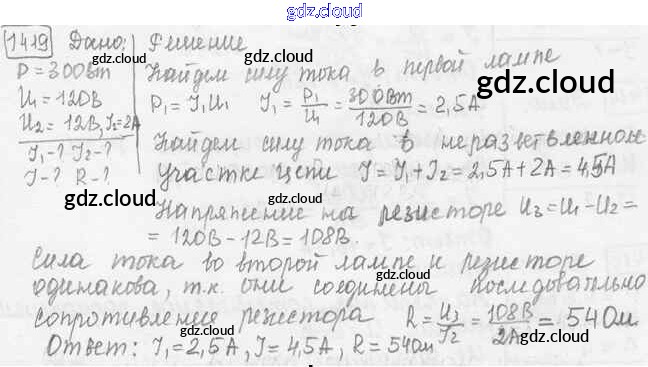 gdz.cloud
1419 Дано: Решение
P = 300Вт Найдем силу тока в первой лампе
U₁ = 120В P₁ = J₁U₁ J₁ = P₁/U₁ = 300Вт/120В = 2,5А
U₂ = 12В, J₂=2А Найдем силу тока в неразветвленном
J₁-? J₂-? участке цепи J = J₁ + J₂ = 2,5А + 2А = 4,5А
J-? R-?
Напряжение на резисторе U₃ = U₁ - U₂ =
= 120В - 12В = 108В
Сила тока во второй лампе и резисторе
одинакова, т.к. они соединены последовательно
сопротивление резистора R = U₃/J₂ = 108В/2А = 54Ом.
Ответ: J₁ = 2,5А, J = 4,5А, R = 54Ом
gdz.cloud
gdz.cloud
gdz.cloud
gdz.cloud
gdz.cloud
gdz.cloud
gdz.cloud
gdz.cloud